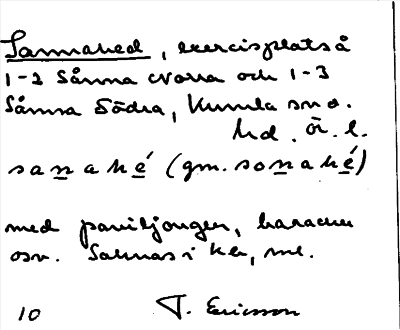 Sannahed, exercisplats å
1-2 Sånna Norra och 1-3
Sånna Södra, Kumla sn o.
hd. Ö. l.
sanahé (gm. sonahé)
med paviljonger, baracker
osv. Saknas i kr, ml.
10 T. Ericsson